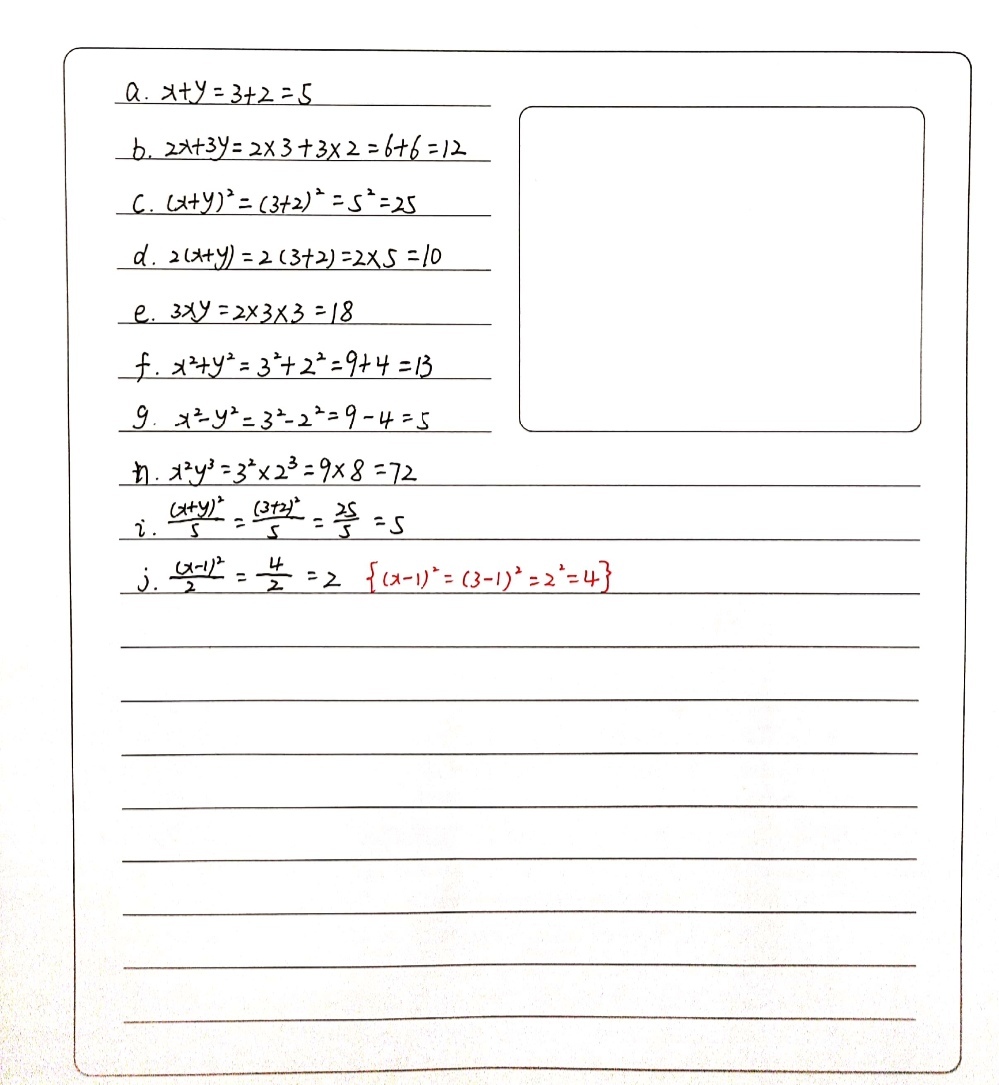 a. x+y=3+2=5
b. 2x+3y=2×3+3×2=6+6=12
c. (x+y)²=(3+2)²=5²=25
d. 2(x+y)=2(3+2)=2×5=10
e. 3xy=2×3×3=18
f. x²+y²=3²+2²=9+4=13
g. x²-y²=3²-2²=9-4=5
h. x²y³=3²×2³=9×8=72
i. (x+y)²/5=(3+2)²/5=25/5=5
j. (x-1)²/2=4/2=2 {(x-1)²=(3-1)²=2²=4}